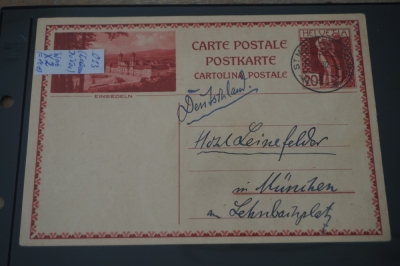 CARTE POSTALE
POSTKARTE
CARTOLINA POSTALE
HELVETIA
20
EINSIEDELN
Deutschland
Leinefelder
in München
am Lehnbachplatz